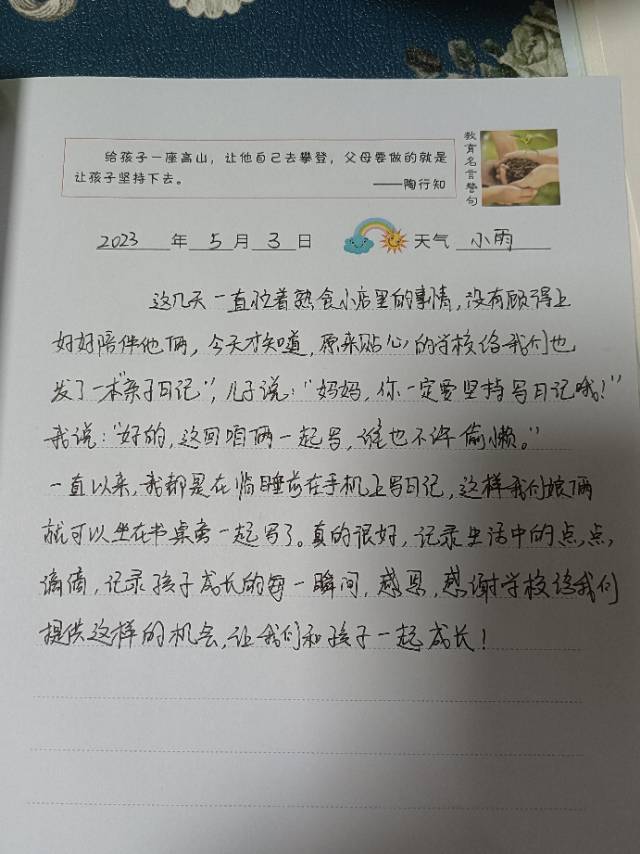 给孩子一座高山，让他自己去攀登，父母要做的就是
让孩子坚持下去。
——陶行知
教育名言警句
2023年5月3日 天气 小雨
这几天一直忙着熟食小店里的事情，没有顾得上
好好陪伴他俩，今天才知道，原来贴心的学校给我们也
发了一本“亲子日记”，儿子说：“妈妈，你一定要坚持写日记哦！”
我说：“好的，这回咱俩一起写，谁也不许偷懒。”
一直以来，我都是在临睡前在手机上写日记，这样我们娘俩
就可以坐在书桌旁一起写了。真的很好，记录生活中的点点，
滴滴，记录孩子成长的每一瞬间，感恩，感谢学校给我们
提供这样的机会，让我们和孩子一起成长！